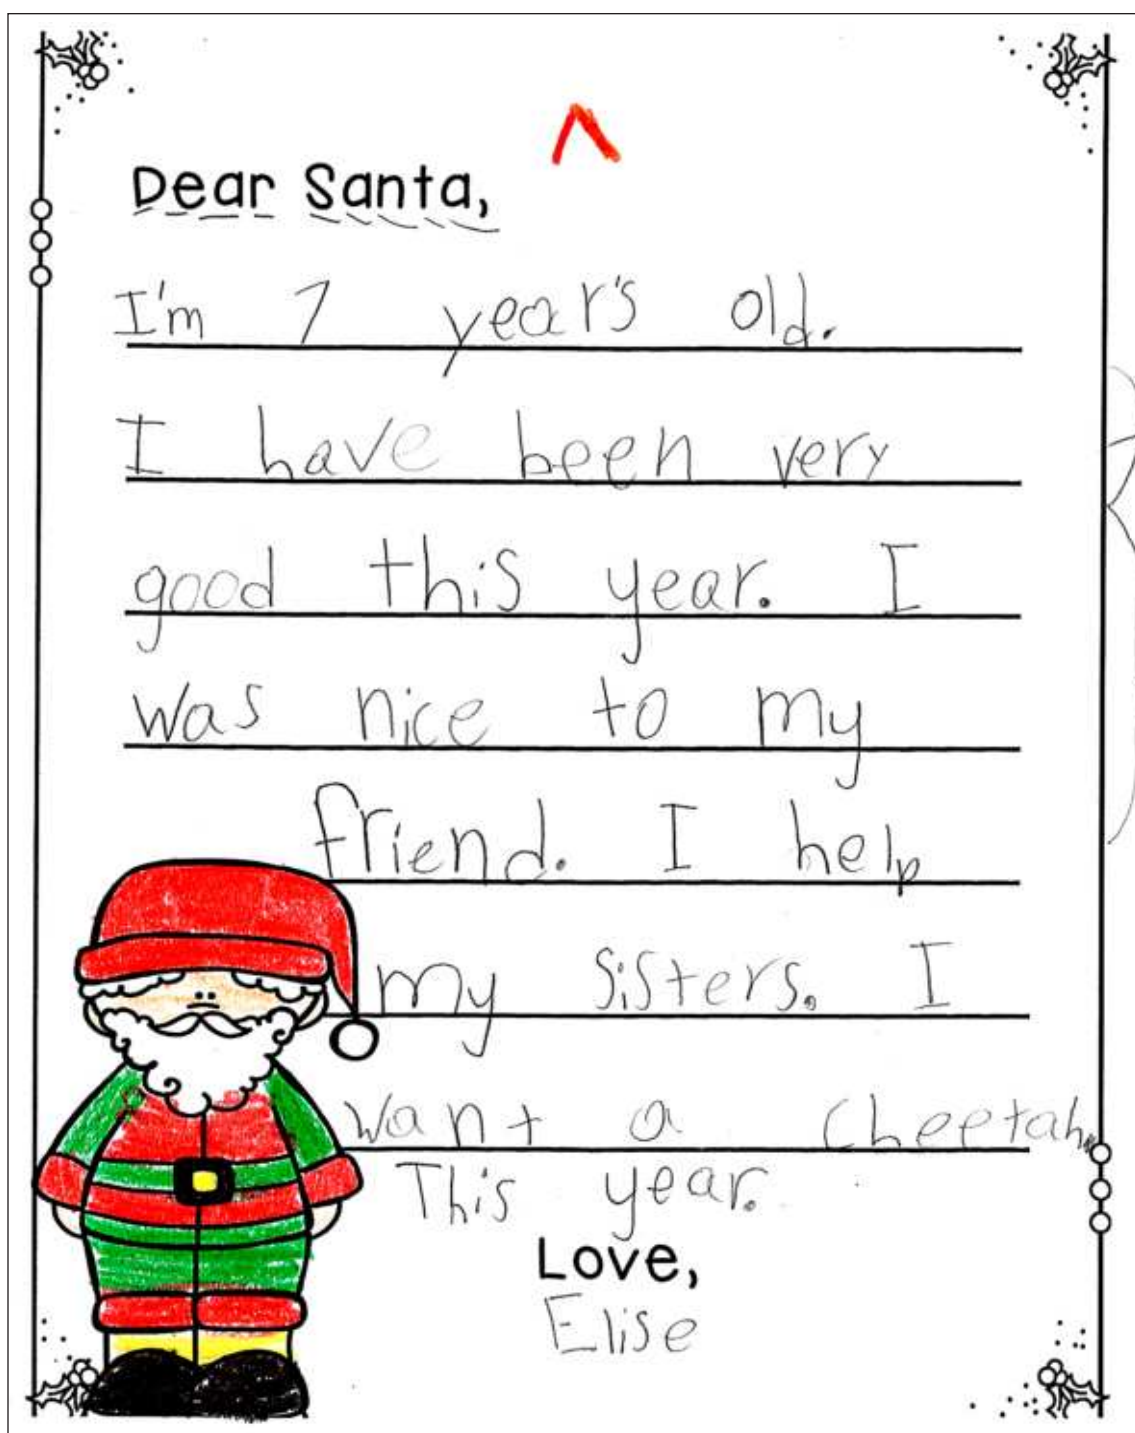 Dear Santa,
I'm 7 year's old.
I have been very
good this year. I
was nice to my
friend. I help
my sisters. I
want a cheetah.
This year.
Love,
Elise